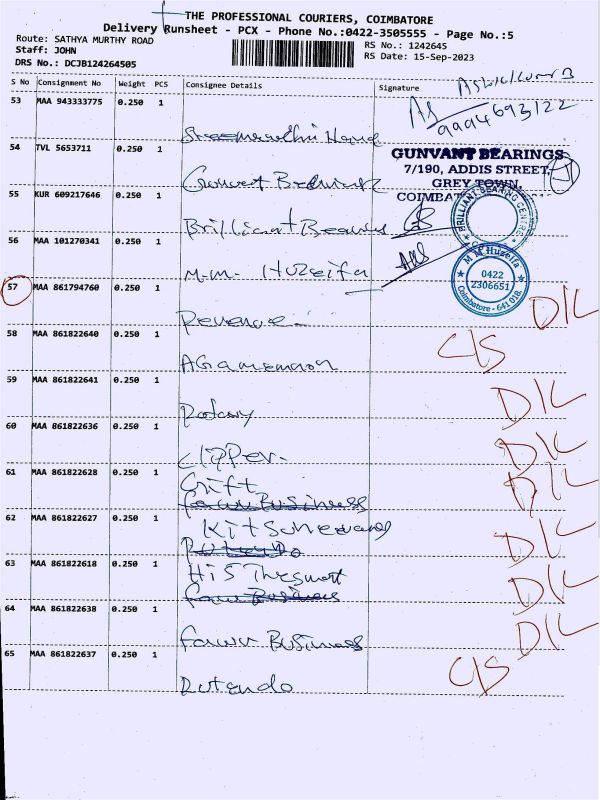 THE PROFESSIONAL COURIERS, COIMBATORE
Delivery Runsheet - PCX - Phone No.:0422-3505555 - Page No.:5
Route: SATHYA MURTHY ROAD
RS No.: 1242645
Staff: JOHN
RS Date: 15-Sep-2023
DRS No.: DCJB124264505
S No Consignment No Weight PCS Consignee Details Signature
53 MAA 943333775 0.250 1
54 TVL 5653711 0.250 1
GUNVANT BEARINGS
7/190, ADDIS STREET,
GREY TOWN,
55 KUR 609217646 0.250 1
Brilliant Bearing
BRILLIANT BEARING CENTRE
56 MAA 101270341 0.250 1
M.M. Huzeifa
M M Huzeifa
0422
2306651
Coimbatore - 641 018.
57 MAA 861794760 0.250 1
Revence
D/L
58 MAA 861822640 0.250 1
Agamemnon
C/S
59 MAA 861822641 0.250 1
Rotary
D/L
60 MAA 861822636 0.250 1
Clipper
D/L
61 MAA 861822628 0.250 1
Gift
D/L
62 MAA 861822627 0.250 1
D/L
63 MAA 861822618 0.250 1
D/L
64 MAA 861822638 0.250 1
Business
D/L
65 MAA 861822637 0.250 1
Rutendo
C/S